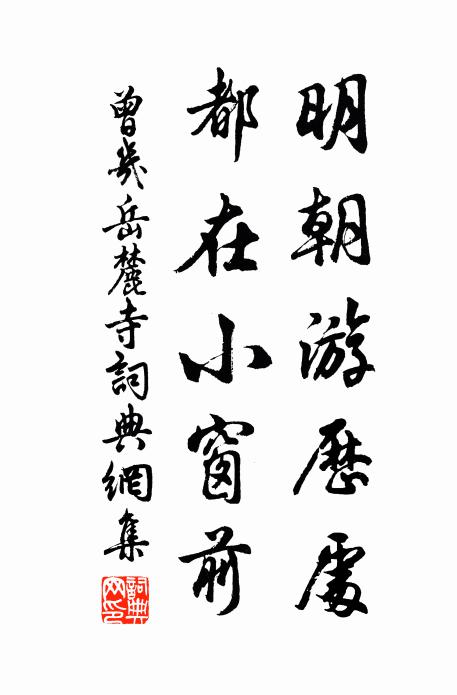 明朝游歷處
都在小窗前
曾幾岳麓寺詞典網集
詞典網印